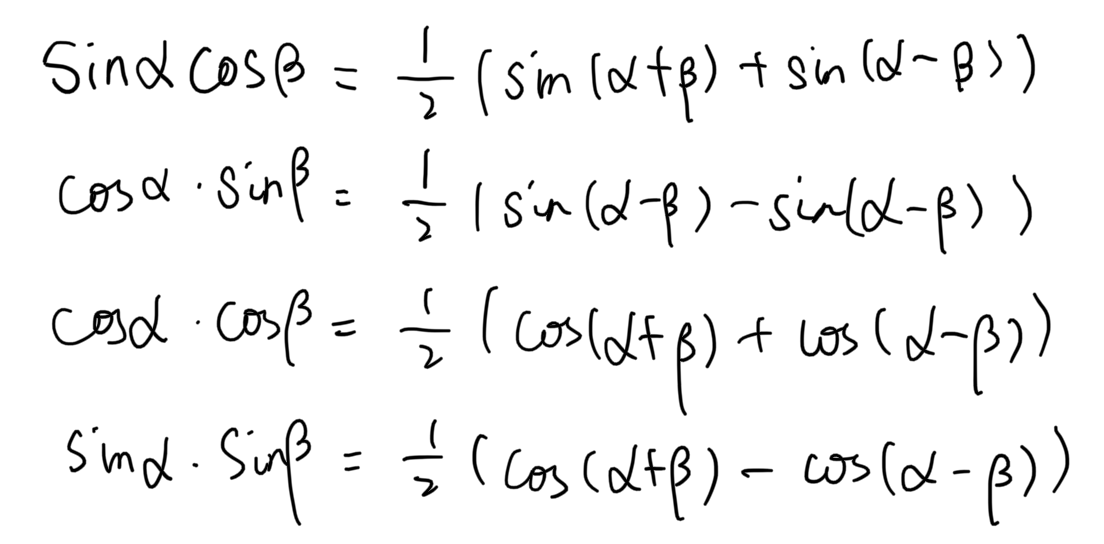 sinα cosβ = 1/2 (sin(α+β) + sin(α-β))
cosα · sinβ = 1/2 (sin(α-β) - sin(α-β))
cosα · cosβ = 1/2 (cos(α+β) + cos(α-β))
sinα · sinβ = 1/2 (cos(α+β) - cos(α-β))